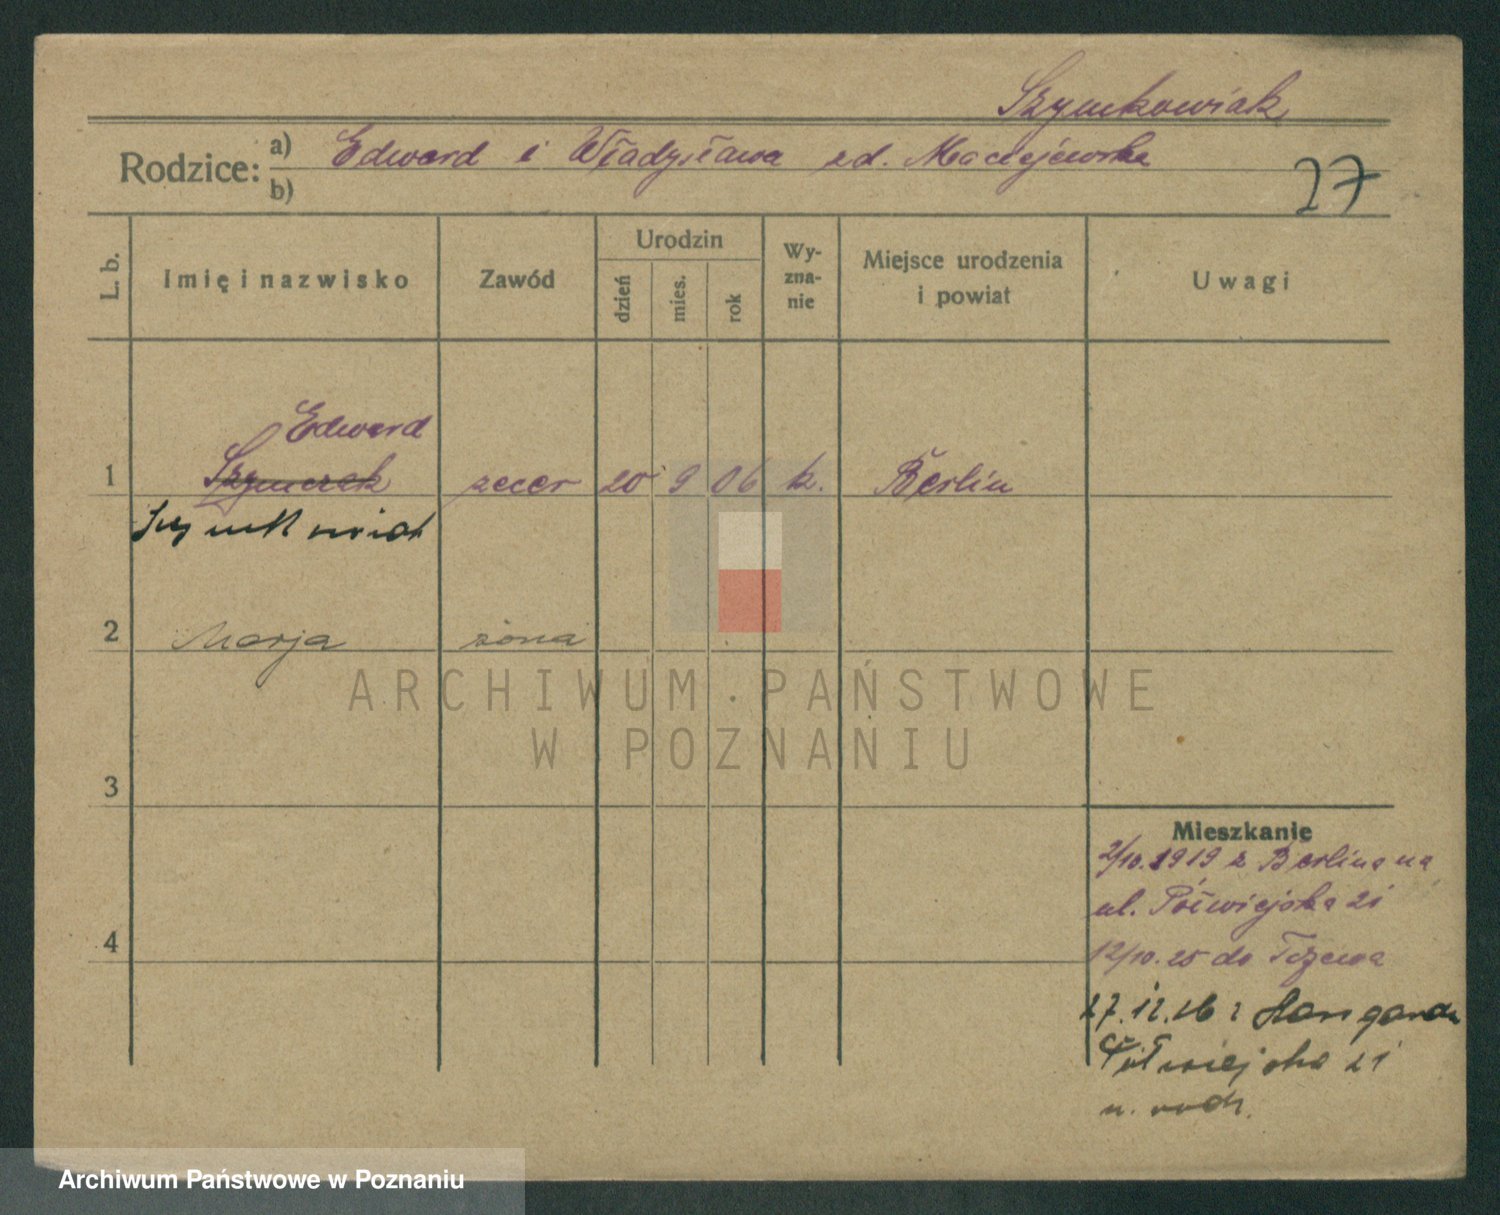 Szymkowiak
Rodzice: a) Edward i Władysława zd. Maciejewska
b)
27
L. b.
Imię i nazwisko
Zawód
Urodzin
dzień
mies.
rok
Wy-
zna-
nie
Miejsce urodzenia
i powiat
Uwagi
Edward
1 Szymczak zecer 20 9 06 k. Berlin
Szymkowiak
2 Marja żona
3
4
Mieszkanie
2/10.1919 z Berlina na
ul. Półwiejska 21
12/10. 25 do Tczewa
27.12.26 z
Półwiejska 21
u. rodz.
ARCHIWUM PAŃSTWOWE
W POZNANIU
Archiwum Państwowe w Poznaniu